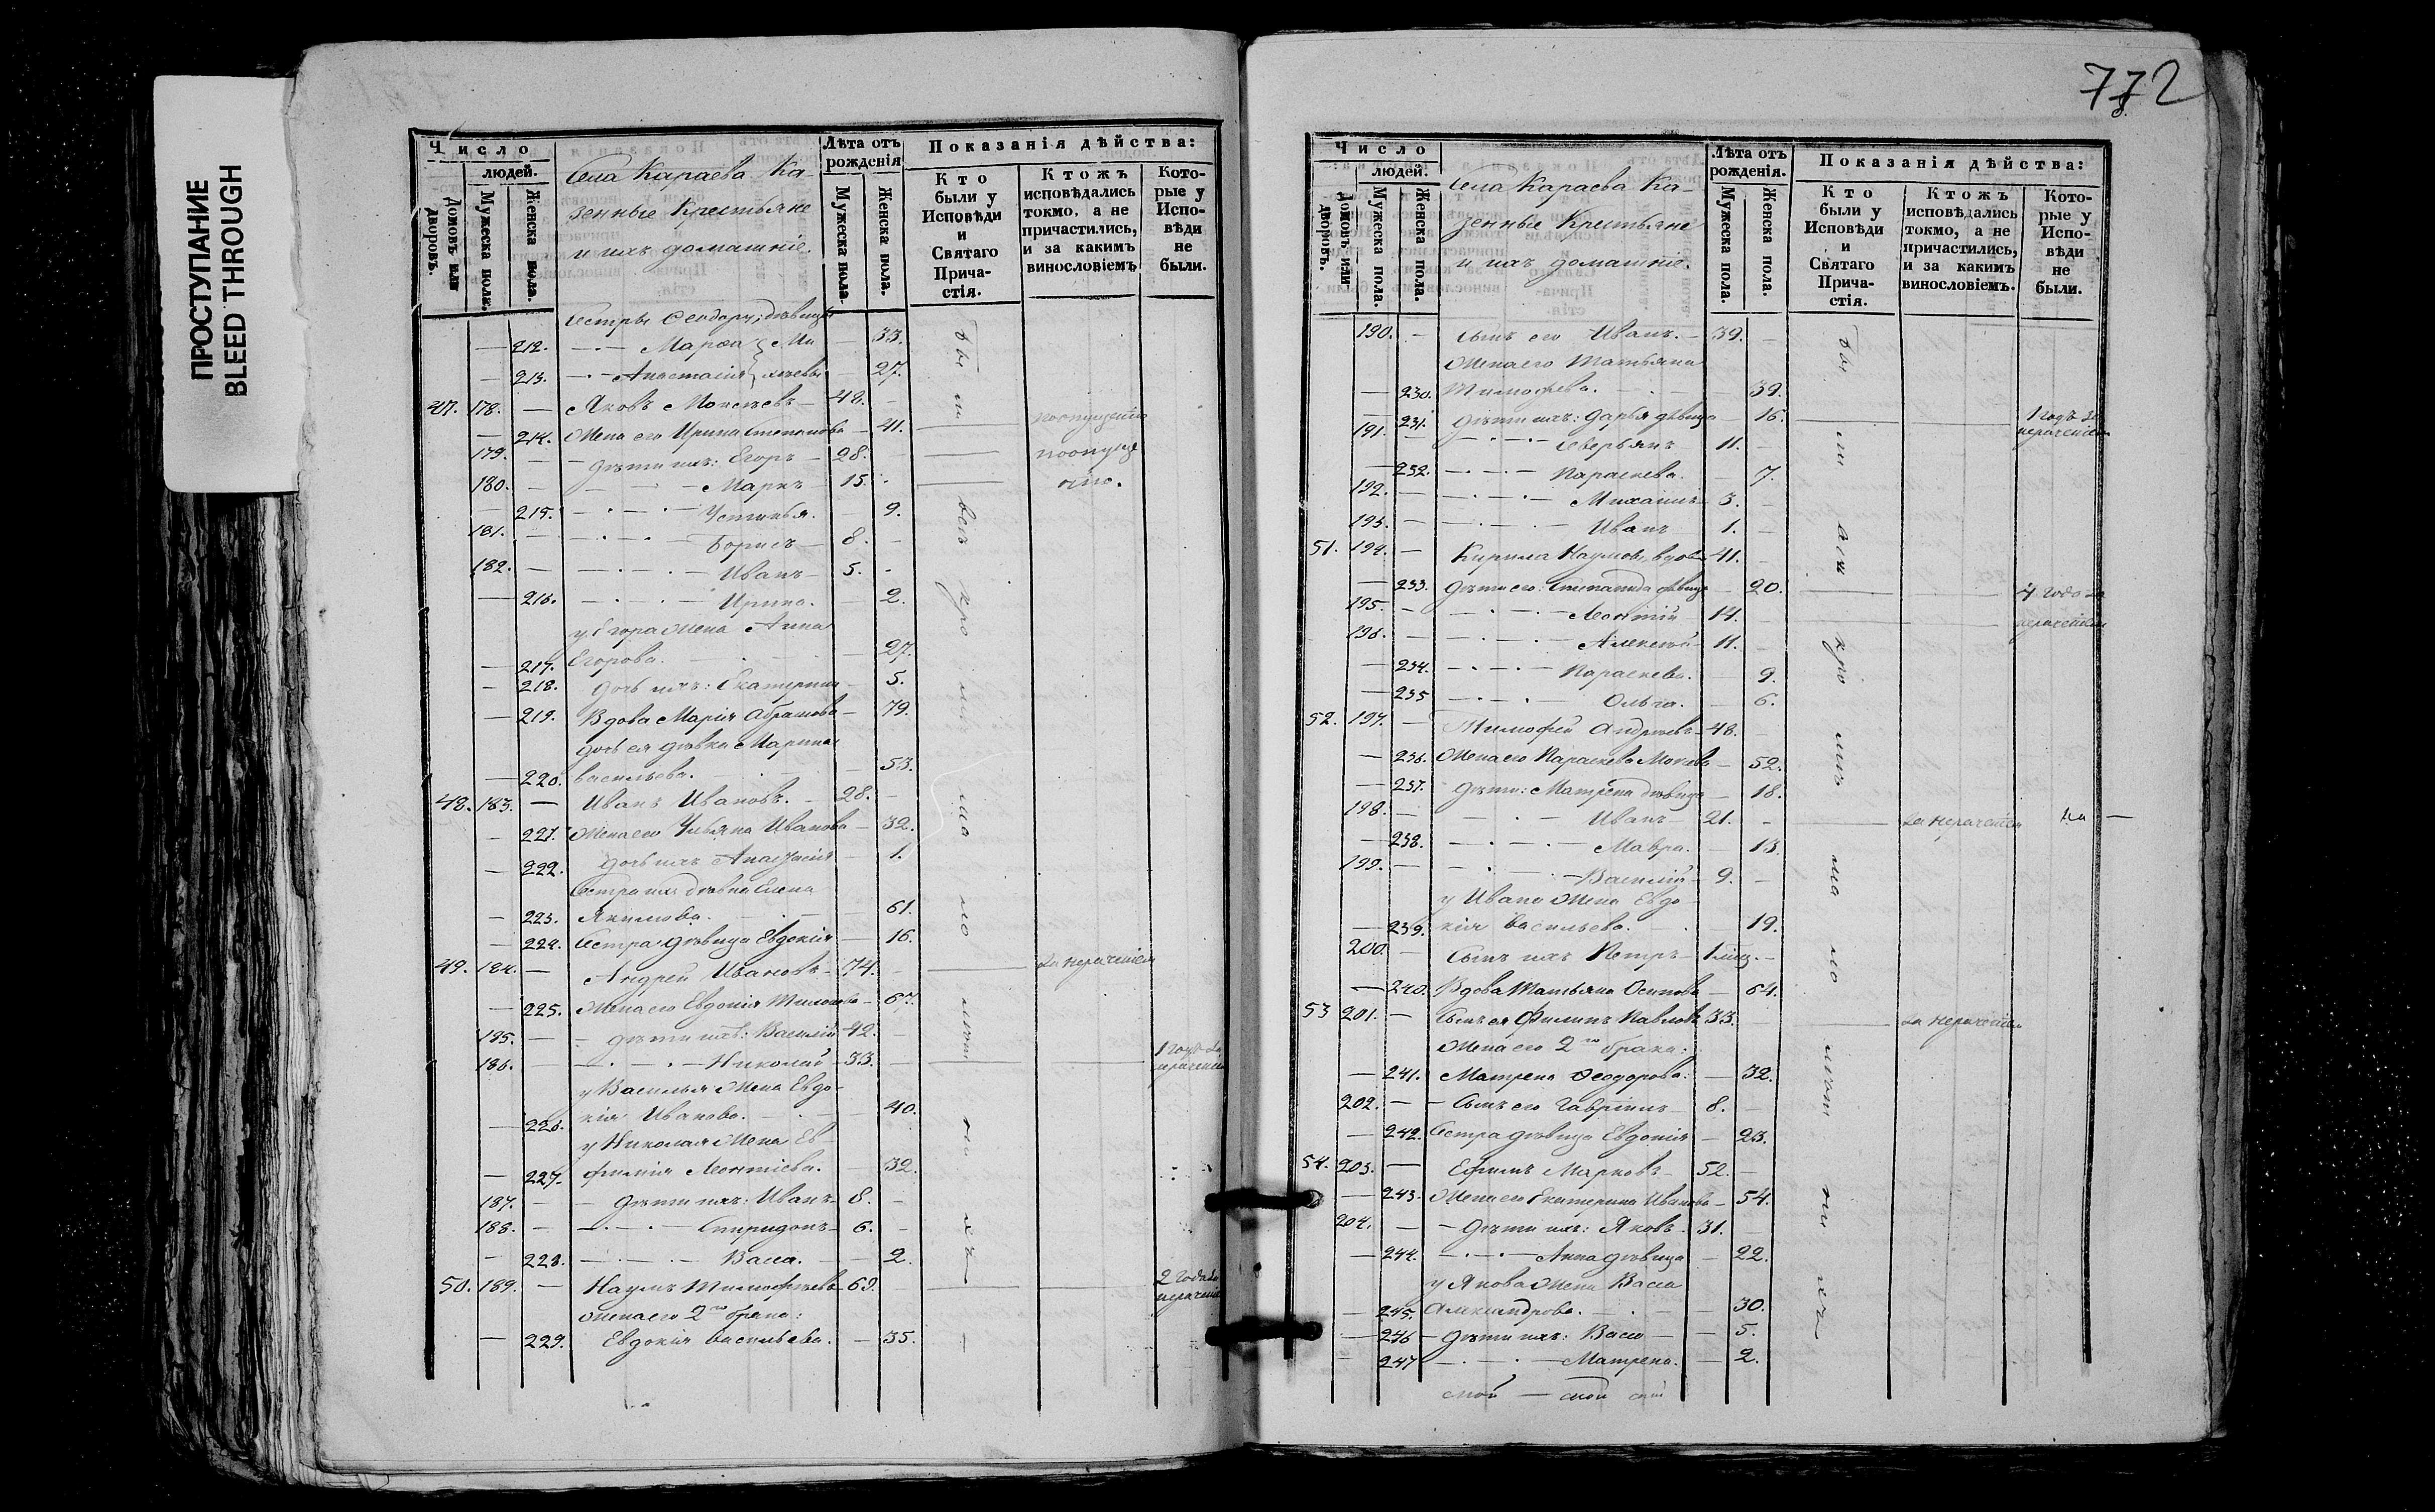 ПРОСТУПАНИЕ
BLEED THROUGH
772
Число
людей.
Домовъ или дворовъ.
Мужеска полк.
Женска пола.
Села Караева Ка-
зенные Крестьяне
и ихъ домашніе.
Лѣта отъ рожденія
Мужеска пола.
Женска пола.
Показанія дѣйства:
Кто были у Исповѣди и Святаго Прича-стія.
Ктожъ исповѣдались токмо, а не причастились, и за какимъ винословіемъ
Кото-рые у Испо-вѣди не были.
Сестры Феодоры, дѣвицы
— 212. — Марѳа } Ми — 33.
— 213. — Анастасія } хѣевы — 27.
47. 178. — Яковъ Моисѣевъ — 48. —
— 214. Жена его Ирина Степанова — 41. — по опущенію
179. — дѣти ихъ: Егоръ — 28. — по опуще
180. — Маркъ — 15. — нію.
— 215. — Устинья. — 9.
181. — Борисъ — 8. —
182. — Иванъ — 5. —
— 216. — Ирина. — 2.
у Егора жена Анна
— 217. Егорова. — 27.
— 218. дочь ихъ: Екатерина — 5.
— 219. Вдова Марія Абрамова — 79.
дочь ея дѣвка Марина
— 220. Васильева. — 53.
48. 183. — Иванъ Ивановъ. — 28. —
— 221. Жена его Ульяна Иванова — 32.
— 222. дочь ихъ Анастасія — 1.
Сестра ихъ дѣвка Елена
— 223. Якимова. — 61.
— 224. Сестра дѣвица Евдокія — 16.
49. 184. — Андрей Ивановъ — 74. — за нераченіем
— 225. Жена его Евдокія Тимоѳева — 67.
185. — дѣти ихъ: Василій 42. —
186. — Николай — 33. — 1 годъ за нераченіем
у Василья жена Евдо-
— 226. кія Иванова. — 40.
у Николая жена Ев-
— 227. фимія Леонтіева. — 32.
187. — дѣти ихъ: Иванъ — 8. —
188. — Спиридонъ — 6. —
— 228. — Васса. — 2.
50. 189. — Наумъ Тимофѣевъ — 69. — 2 года за нераченіем
Жена его 2го брака:
— 229. Евдокія Васильева. — 35.
Бы ли всѣ кро ма ло лѣт ни хъ
Число
людей.
Домовъ или дворовъ.
Мужеска пола.
Женска пола.
Села Караева Ка-
зенные Крестьяне
и ихъ домашніе.
Лѣта отъ рожденія.
Мужеска пола.
Женска пола.
Показанія дѣйства:
Кто были у Исповѣди и Святаго Прича-стія.
Ктожъ исповѣдались токмо, а не причастились, и за какимъ винословіемъ.
Кото-рые у Испо-вѣди не были.
190. — Сынъ его Иванъ. — 39. —
Жена его Татьяна
— 230. Тимофѣева. — 39.
— 231. дѣти ихъ: Дарья дѣвица — 16. — 1 годъ за нераченіем
191. — Северьянъ 11. —
— 232. — Параскева. — 7.
192. — Михаилъ — 3. —
193. — Иванъ 1. —
51. 194. — Кирила Наумовъ, вдовъ — 41. —
— 233. дѣти его: Степанида дѣвица — 20. — 4 года за нераченіем
195. — Леонтій 14. —
196. — Алексѣй — 11. —
— 234. — Параскева. — 9.
— 235 — Ольга. — 6.
52. 197. — Тимофей Андреевъ — 48. —
— 236. Жена его Параскева Моисѣева — 52.
— 237. дѣти: Матрена дѣвица — 18.
198. — Иванъ — 21. — за нераченіем
— 238. — Мавра. — 13.
199. — Василій — 9. —
у Ивана жена Евдо-
— 239. кія Васильева. — 19.
200. — Сынъ ихъ Петръ — 1 мѣс. —
— 240. Вдова Татьяна Осипова — 64.
53 201. — Сынъ ея Филипъ Павловъ 33. — за нераченіем
Жена его 2го брака:
— 241. Матрена Ѳеодорова. — 32.
202. — Сынъ его Гавріилъ — 8. —
— 242. Сестра дѣвица Евдокія — 23.
54. 203. — Ефимъ Марковъ — 52. —
— 243. Жена его Екатерина Иванова — 54.
204. — дѣти ихъ: Яковъ — 31. —
— 244. — Анна дѣвица — 22.
у Якова жена Васса
— 245. Александрова. — 30.
— 246 — дѣти ихъ: Васса — 5.
— 247 — Матрена. — 2.
Бы ли всѣ кро мѣ ма ло лѣт ни хъ